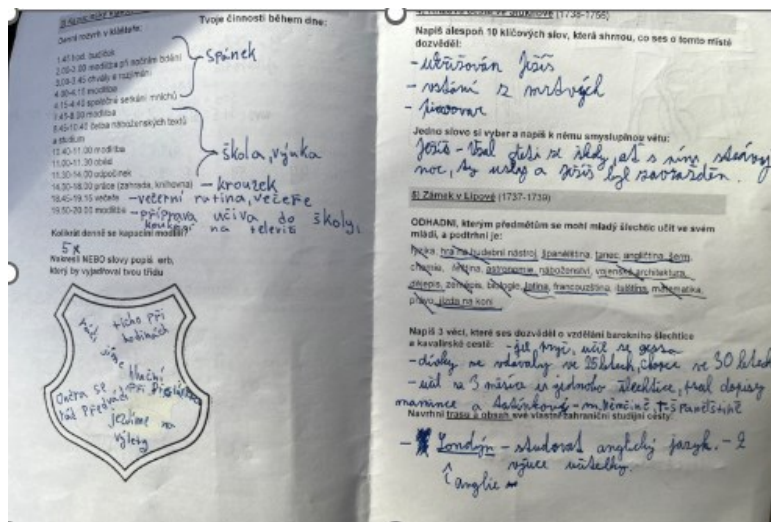 Tvoje činnosti během dne:
Denní rozvrh v klášteře:
1.45 hod. budíček
2.00-3.00 modlitba při nočním bdění
3.00-3.45 chvály a rozjímání
4.00-4.15 modlitba
4.15-4.40 společné setkání mnichů
spánek
7.45-8.00 modlitba
8.45-10.40 četba náboženských textů
a studium
10.40-11.00 modlitba
11.00-11.30 oběd
11.30-14.00 odpočinek
škola, výuka
14.00-18.00 práce (zahrada, knihovna)
- kroužek
18.45-19.15 večeře
- večerní rutina, večeře
19.50-20.00 modlitba
- příprava učiva do školy,
koukání na televizi
Kolikrát denně se kapucíni modlili?
5x
Nakresli NEBO slovy popiš erb,
který by vyjadřoval tvou třídu
ticho při
hodinách
více
hluční
o přestávkách
jezdíme na
výlety
(1738-1756)
Napiš alespoň 10 klíčových slov, která shrnou, co ses o tomto místě
dozvěděl:
- ukřižován Ježíš
- vstání z mrtvých
- pivovar
Jedno slovo si vyber a napiš k němu smysluplnou větu:
Ježíš - Vzal
noc, a Ježíš byl zavražděn.
5) Zámek v Lipové (1737-1739)
ODHADNI, kterým předmětům se mohl mladý šlechtic učit ve svém
mládí, a podtrhni je:
fyzika, hra na hudební nástroj, španělština, tanec, angličtina, šerm,
chemie, řečtina, astronomie, náboženství, vojenská architektura,
dějepis, zeměpis, biologie, latina, francouzština, italština, matematika,
právo, jízda na koni
Napiš 3 věci, které ses dozvěděl o vzdělání barokního šlechtice
a kavalírské cestě:
- jel pryč, učil se
- dívky se vdávaly ve 25 letech, chlapce ve 30 letech
- učil se 3 měsíce u jednoho šlechtice, psal dopisy
mamince a tatínkovi - m. němčině, t - španělštině
Navrhni trasu a obsah své vlastní zahraniční studijní cesty:
- Londýn - studovat anglický jazyk. - 2
výuce učitelky.
Anglie